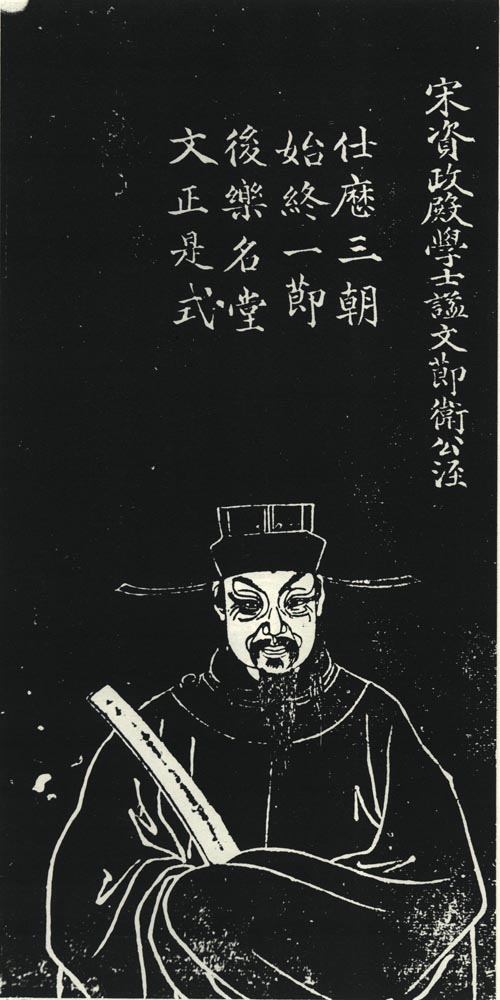 宋資政殿學士謚文節衛公涇
仕歷三朝
始終一節
後樂名堂
文正是式